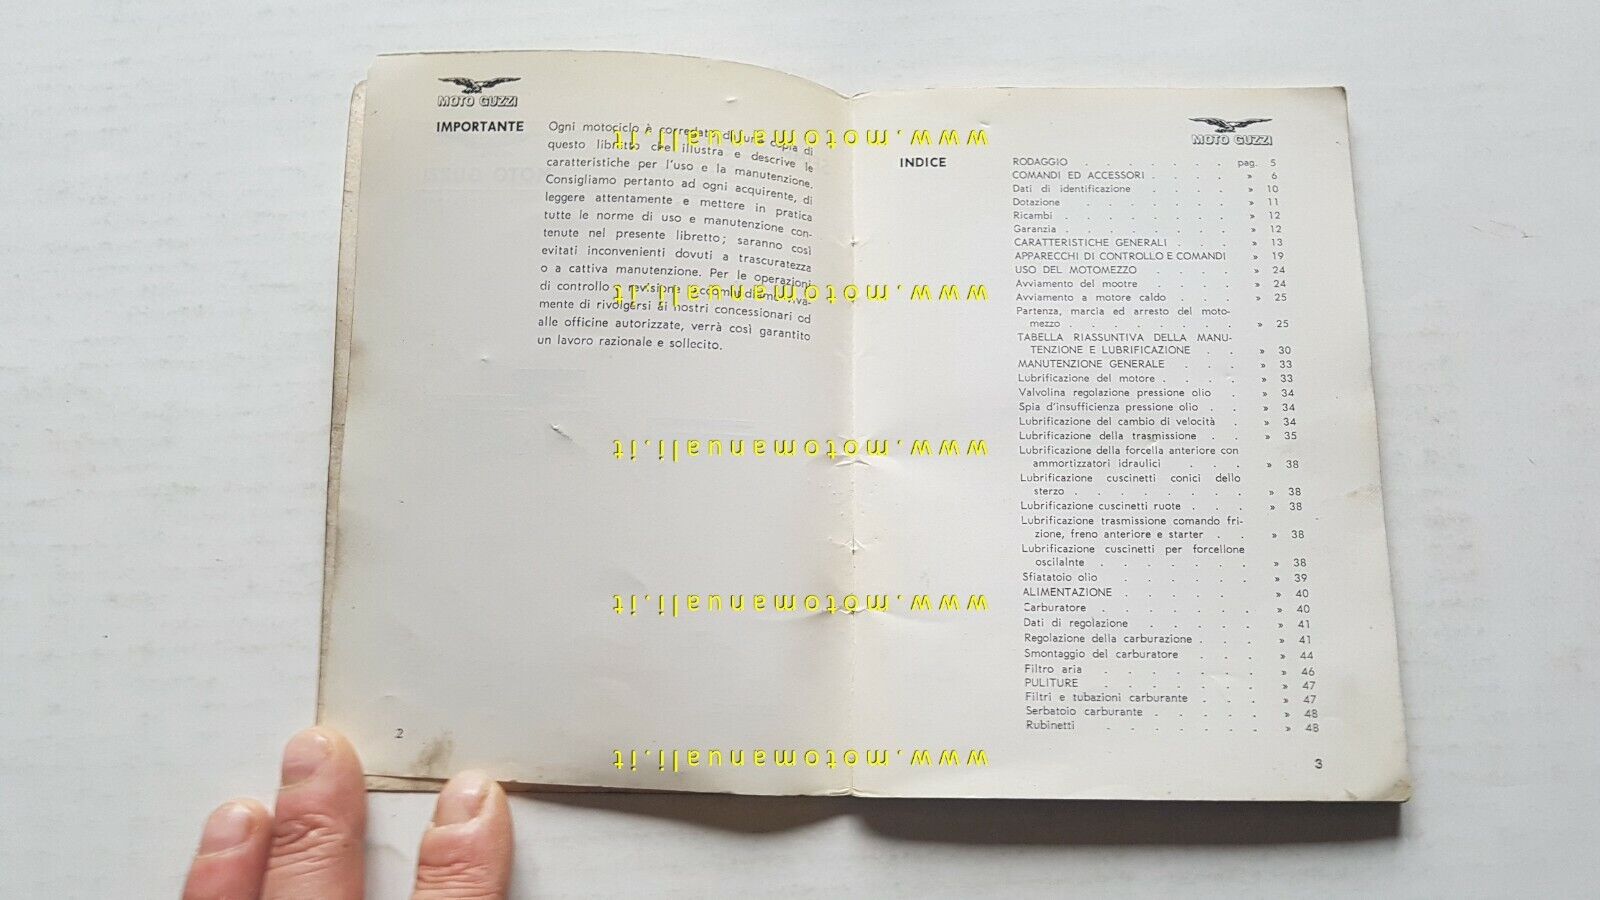 MOTO GUZZI
IMPORTANTE
Ogni motociclo è corredato di una copia di
questo libretto che illustra e descrive le
caratteristiche per l'uso e la manutenzione.
Consigliamo pertanto ad ogni acquirente, di
leggere attentamente e mettere in pratica
tutte le norme di uso e manutenzione con-
tenute nel presente libretto; saranno così
evitati inconvenienti dovuti a trascuratezza
o a cattiva manutenzione. Per le operazioni
di controllo revisione
mente di rivolgersi ai nostri concessionari od
alle officine autorizzate, verrà così garantito
un lavoro razionale e sollecito.
2
MOTO GUZZI
INDICE
RODAGGIO . . . . . . . pag. 5
COMANDI ED ACCESSORI . . . . » 6
Dati di identificazione . . . . » 10
Dotazione . . . . . . . » 11
Ricambi . . . . . . . . » 12
Garanzia . . . . . . . . » 12
CARATTERISTICHE GENERALI . . . » 13
APPARECCHI DI CONTROLLO E COMANDI » 19
USO DEL MOTOMEZZO . . . . » 24
Avviamento del mootre . . . . » 24
Avviamento a motore caldo . . . » 25
Partenza, marcia ed arresto del moto-
mezzo . . . . . . . . » 25
TABELLA RIASSUNTIVA DELLA MANU-
TENZIONE E LUBRIFICAZIONE . . » 30
MANUTENZIONE GENERALE . . . » 33
Lubrificazione del motore . . . . » 33
Valvolina regolazione pressione olio . » 34
Spia d'insufficienza pressione olio . . » 34
Lubrificazione del cambio di velocità . » 34
Lubrificazione della trasmissione . . » 35
Lubrificazione della forcella anteriore con
ammortizzatori idraulici . . . » 38
Lubrificazione cuscinetti conici dello
sterzo . . . . . . . . » 38
Lubrificazione cuscinetti ruote . . . » 38
Lubrificazione trasmissione comando fri-
zione, freno anteriore e starter . . » 38
Lubrificazione cuscinetti per forcellone
oscilalnte . . . . . . » 38
Sfiatatoio olio . . . . . . » 39
ALIMENTAZIONE . . . . . » 40
Carburatore . . . . . . . » 40
Dati di regolazione . . . . . » 41
Regolazione della carburazione . . . » 41
Smontaggio del carburatore . . . » 44
Filtro aria . . . . . . . » 46
PULITURE . . . . . . . » 47
Filtri e tubazioni carburante . . . » 47
Serbatoio carburante . . . . . » 48
Rubinetti . . . . . . . » 48
3
www.motomanuali.it
www.motomanuali.it
www.motomanuali.it
www.motomanuali.it
www.motomanuali.it